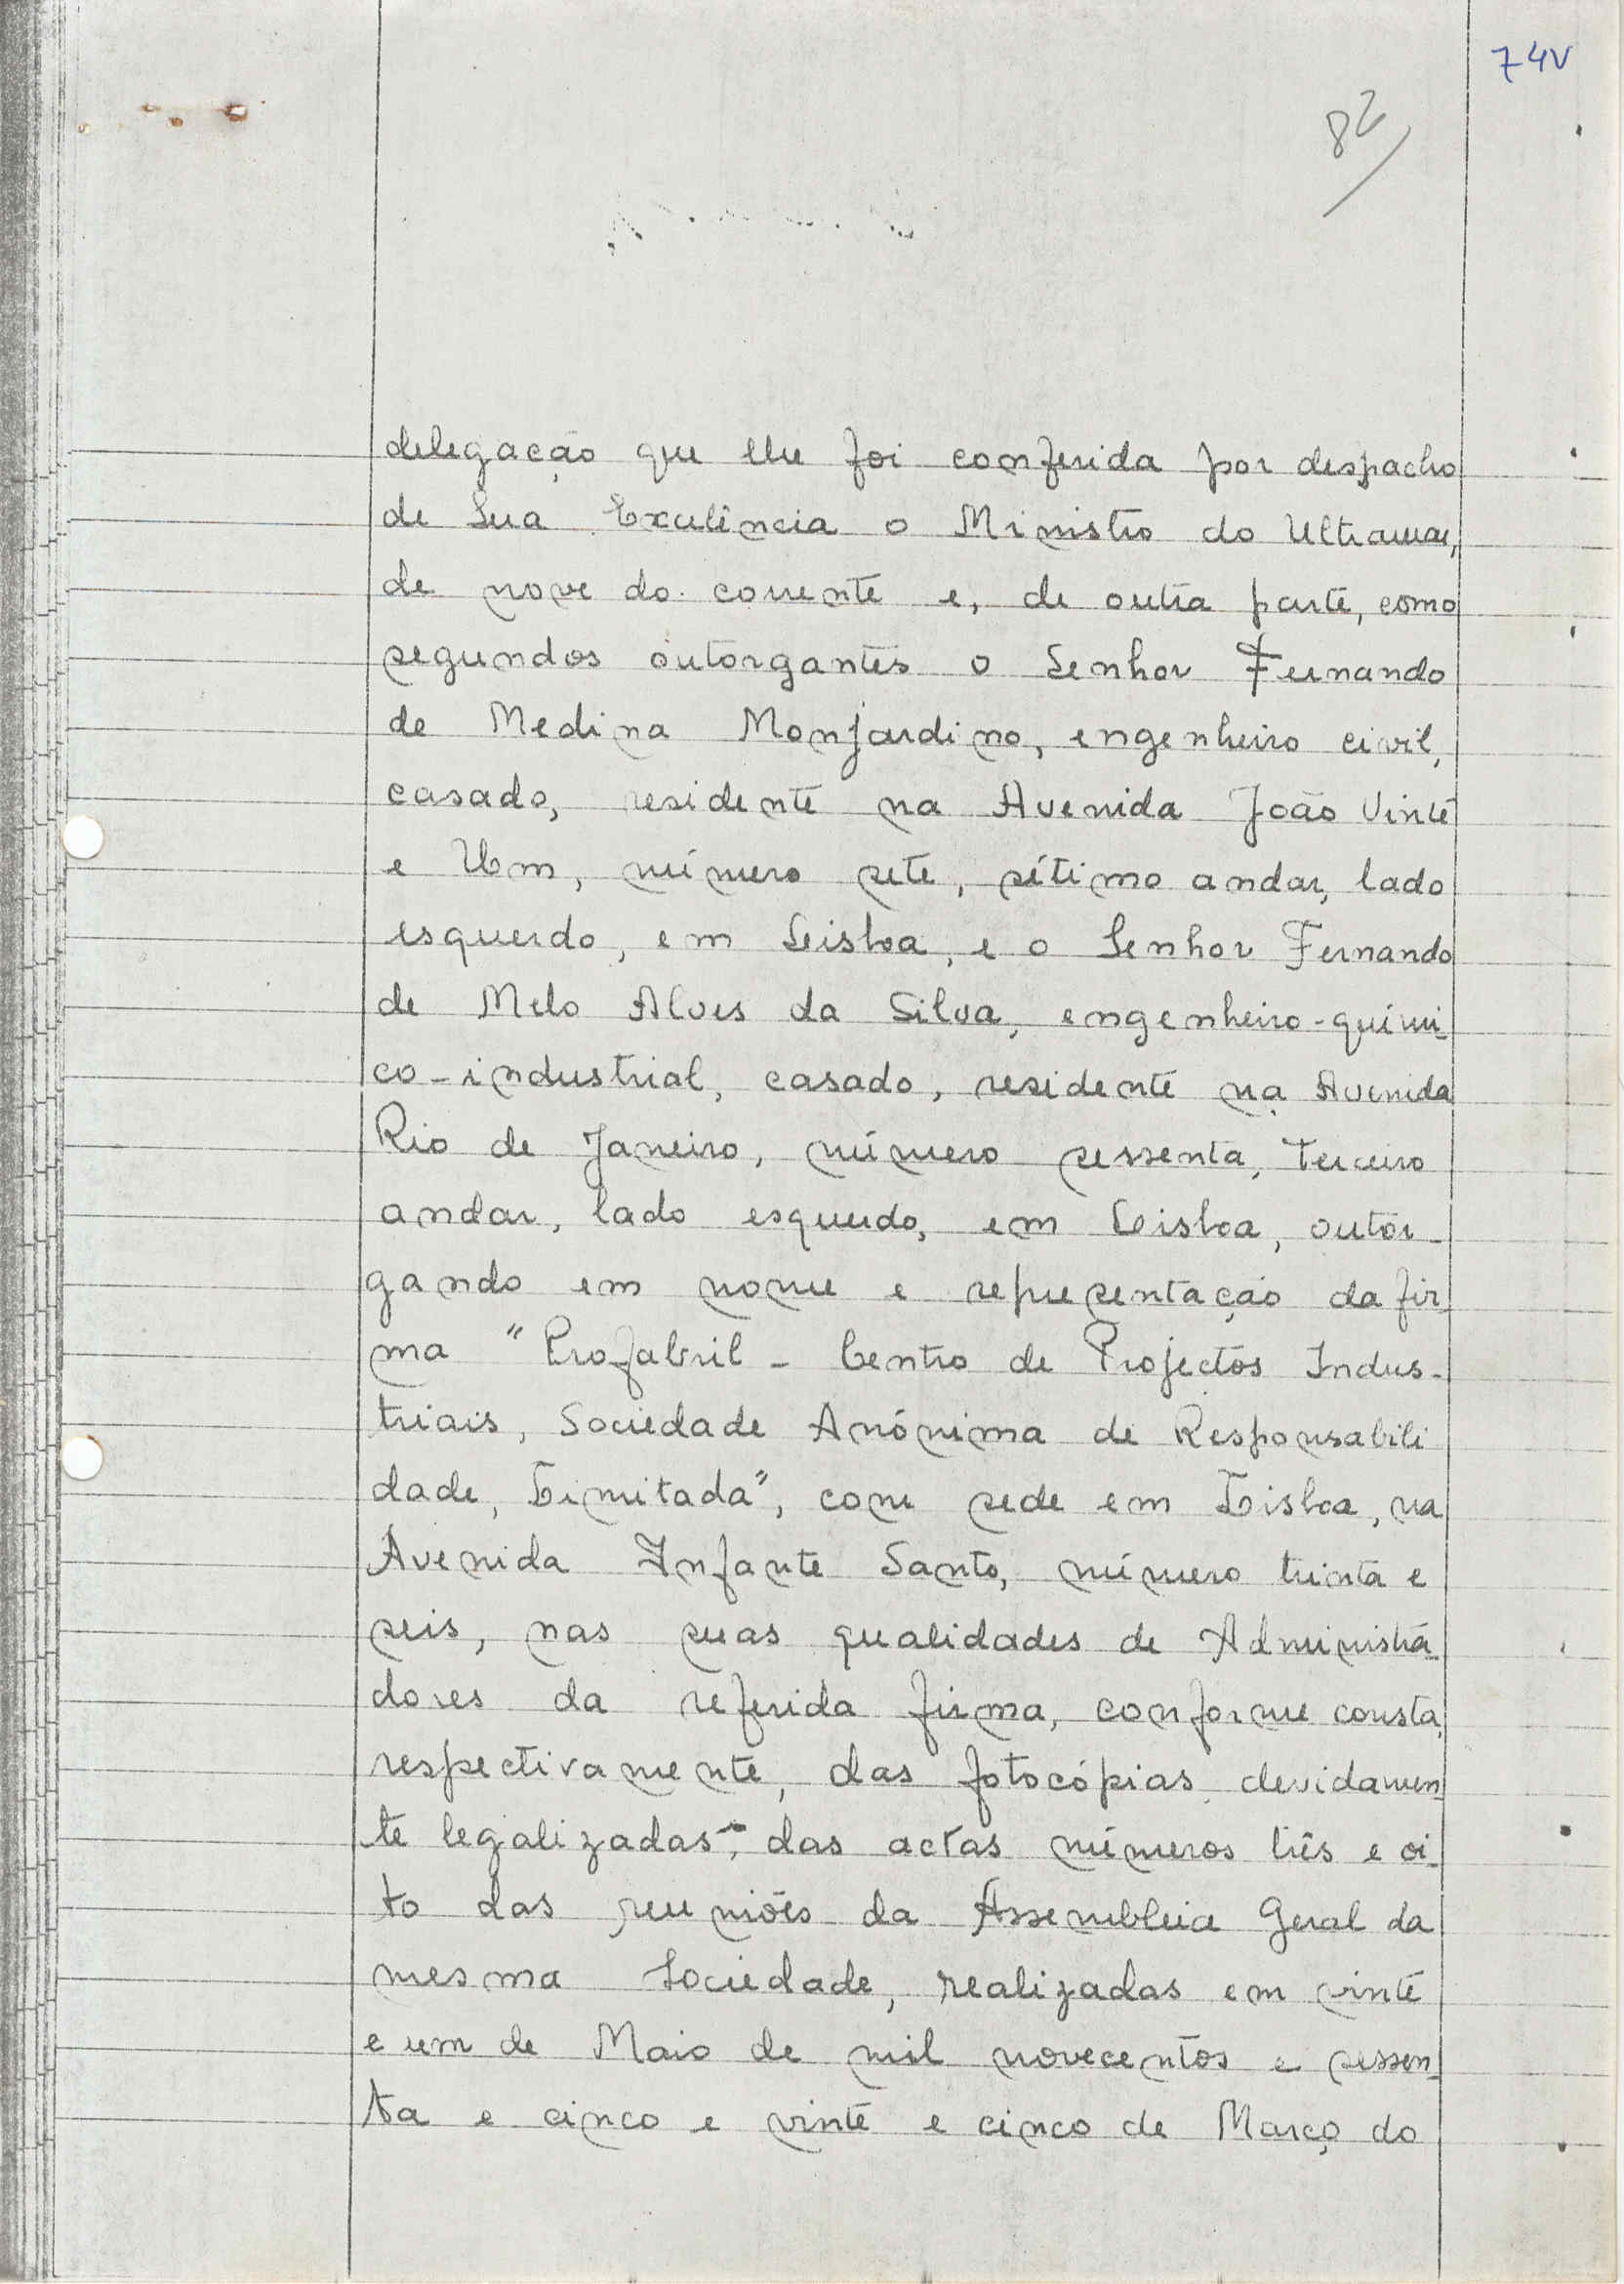 74V
82
delegação que lhe foi conferida por despacho
de Sua Excelência o Ministro do Ultramar,
de nove do corrente e, de outra parte, como
segundos outorgantes o Senhor Fernando
de Medina Monjardino, engenheiro civil,
casado, residente na Avenida João Vinte
e Um, número sete, sétimo andar, lado
esquerdo, em Lisboa, e o Senhor Fernando
de Melo Alves da Silva, engenheiro-quími-
co-industrial, casado, residente na Avenida
Rio de Janeiro, número sessenta, terceiro
andar, lado esquerdo, em Lisboa, outor-
gando em nome e representação da fir-
ma "Profabril - Centro de Projectos Indus-
triais, Sociedade Anónima de Responsabili
dade, Limitada", com sede em Lisboa, na
Avenida Infante Santo, número trinta e
seis, nas suas qualidades de Administra-
dores da referida firma, conforme consta,
respectivamente, das fotocópias, devidamen
te legalizadas, das actas números três e oi-
to das reuniões da Assembleia Geral da
mesma Sociedade, realizadas em vinte
e um de Maio de mil novecentos e sessen-
ta e cinco e vinte e cinco de Março do